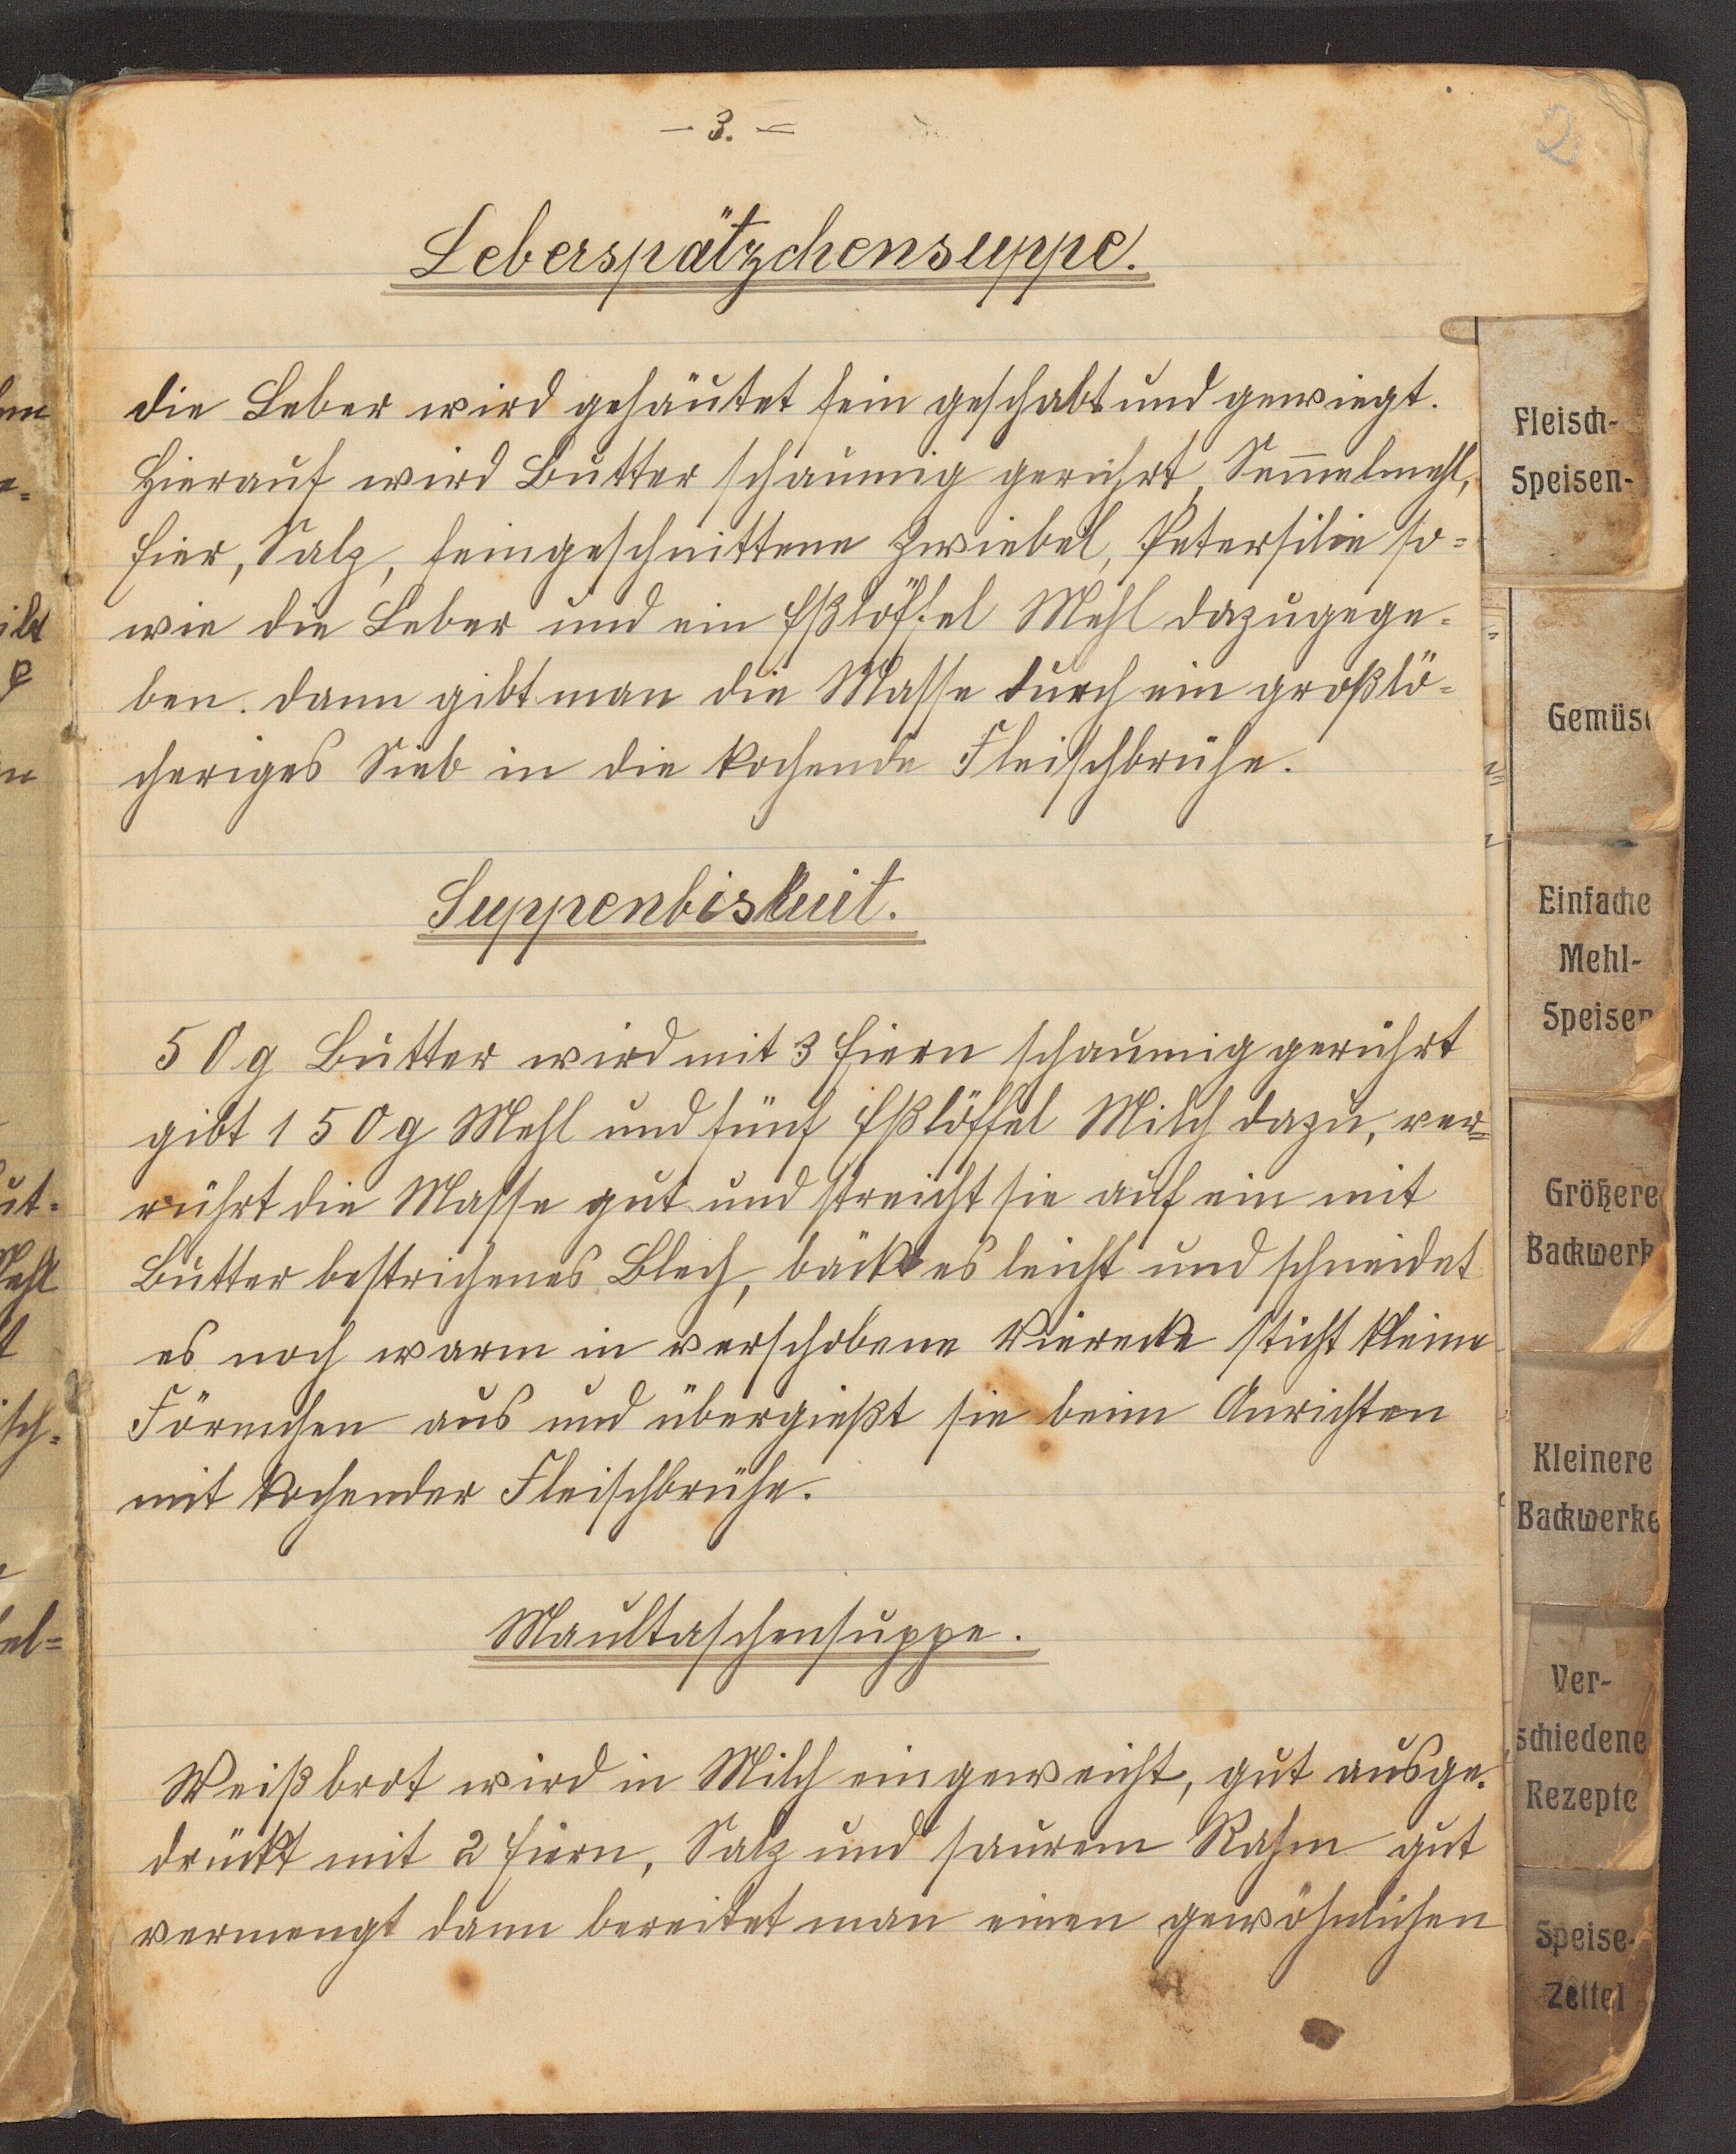 - 3. -
2
Leberspätzchensuppe.
die Leber wird gehäutet fein geschabt und gewiegt.
Hierauf wird Butter schaumig gerührt, Sem̅elmehl,
Eier, Salz, feingeschnittene Zwiebel, Petersilie so-
wie die Leber und ein Eßlöffel Mehl dazugege-
ben. dann gibt man die Masse durch ein großlö-
cheriges Sieb in die kochende Fleischbrühe.
Suppenbiskuit.
50g Butter wird mit 3 Eiern schaumig gerührt
gibt 150g Mehl und fünf Eßlöffel Milch dazu, ver-
rührt die Masse gut und streicht sie auf ein mit
Butter bestrichenes Blech, bäckt es leicht und schneidet
es noch warm in verschobene Vierecke sticht kleine
Förmchen aus und übergießt sie beim Anrichten
mit kochender Fleischbrühe.
Maultaschensuppe.
Weißbrot wird in Milch eingeweicht, gut ausge-
drückt mit 2 Eiern, Salz und saurem Rahm gut
vermengt dann bereitet man einen gewöhnlichen
Fleisch-
Speisen-
Gemüse
Einfache
Mehl-
Speisen
Größere
Backwerk
Kleinere
Backwerke
Ver-
schiedene
Rezepte
Speise-
Zettel